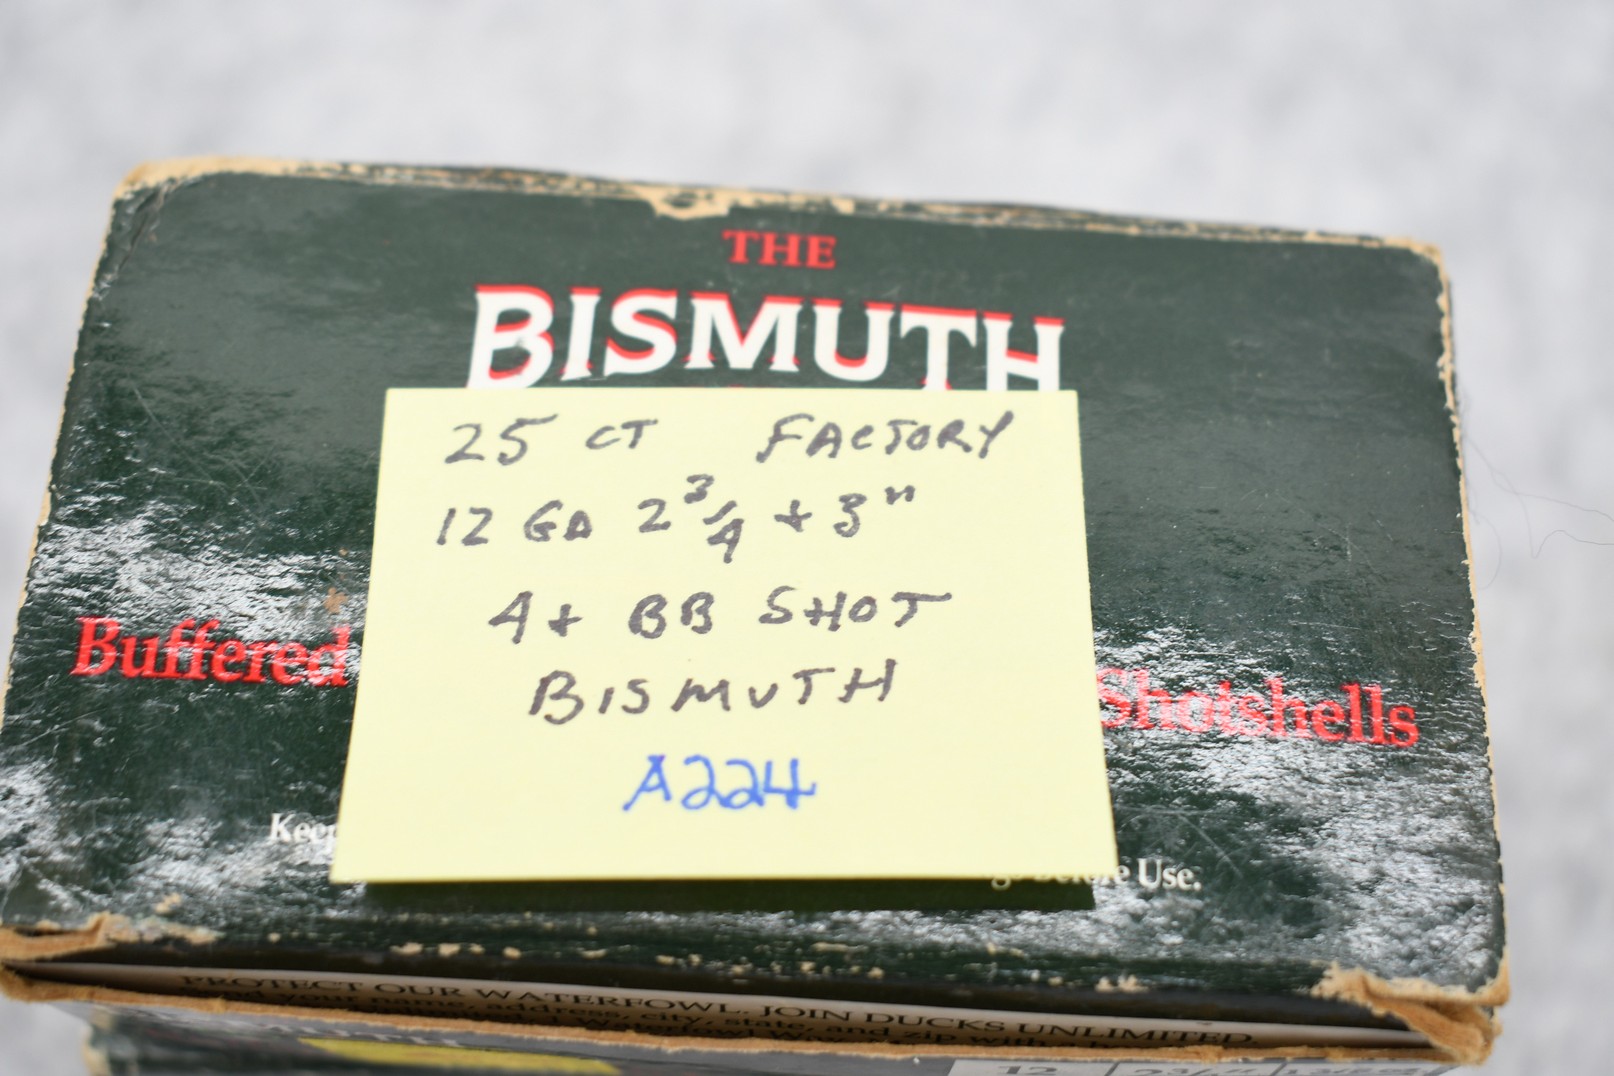 THE
BISMUTH
25 CT FACTORY
12 GA 2 3/4 + 3"
4 + BB SHOT
BISMUTH
A224
Buffered Shotshells
Keep
Before Use.
PROTECT OUR WATERFOWL. JOIN DUCKS UNLIMITED.
your name, address, city, state, and zip
12 2 3/4"